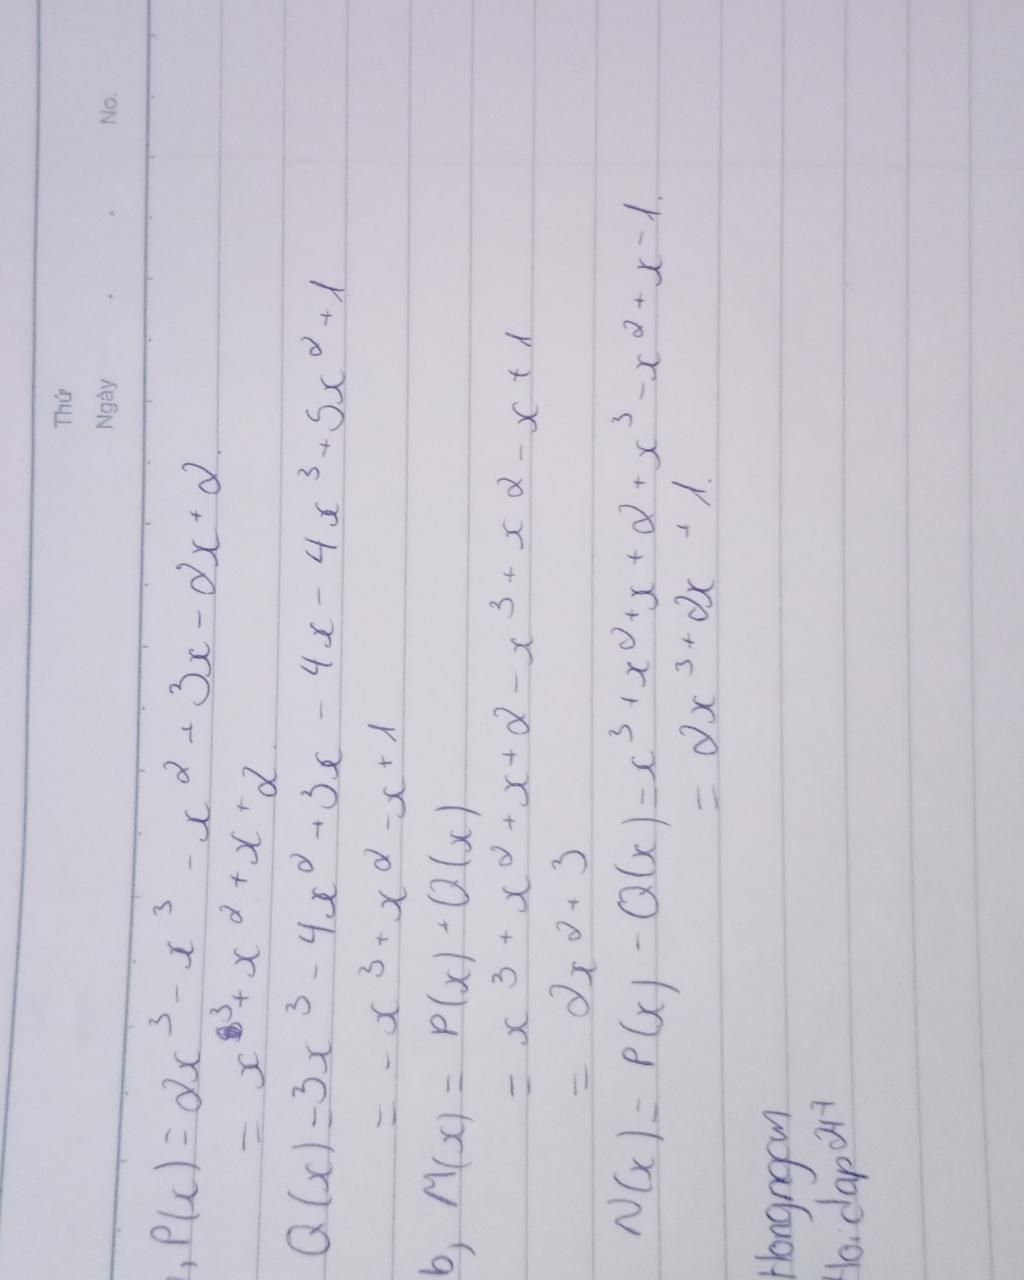 Thứ
Ngày . . No.
, P(x) = 2x³ - x³ - x² + 3x - 2x + 2
= x³ + x² + x + 2
Q(x) = 3x³ - 4x² + 3x - 4x - 4x³ + 5x² + 1
= - x³ + x² - x + 1
b, M(x) = P(x) + Q(x)
= x³ + x² + x + 2 - x³ + x² - x + 1
= 2x² + 3
N(x) = P(x) - Q(x) = x³ + x² + x + 2 + x³ - x² + x - 1.
= 2x³ + 2x + 1.
Hongngan
Hoidap247